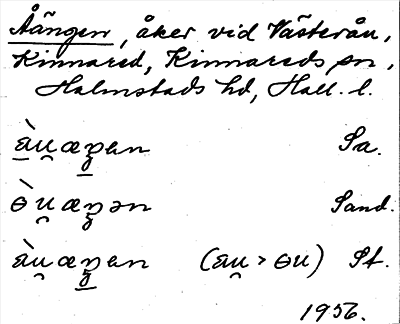 Åängen, åker vid Västerån,
Kinnared, Kinnareds sn,
Halmstads hd, Hall. l.
àu̯æŋen Sa.
ɵ̀u̯æŋən Sand.
àu̯æŋen (au̯ > ɵu) St.
1956.